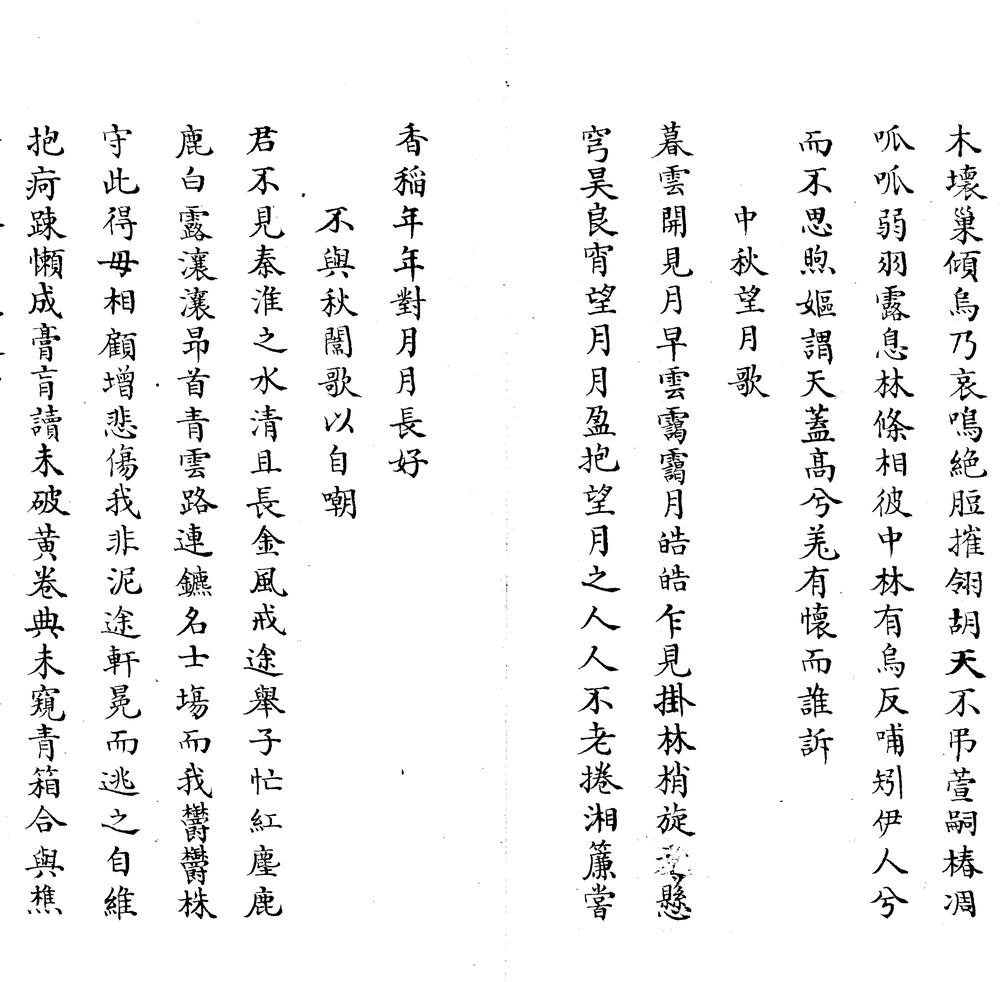 木壞巢傾烏乃哀鳴絕脰摧翎胡天不弔萱嗣椿凋
呱呱弱羽露息林條相彼中林有烏反哺矧伊人兮
而不思煦嫗謂天蓋高兮羌有懷而誰訴
中秋望月歌
暮雲開見月早雲靄靄月皓皓乍見掛林梢旋懸
穹昊良宵望月月盈抱望月之人人不老捲湘簾嘗
香稲年年對月月長好
不與秋闈歌以自嘲
君不見秦淮之水清且長金風戒途舉子忙紅塵鹿
鹿白露瀼瀼昻首青雲路連鑣名士塲而我鬱鬱株
守此得毋相顧增悲傷我非泥途軒冕而逃之自維
抱疴踈懶成膏肓讀未破黃卷典未窺青箱合與樵